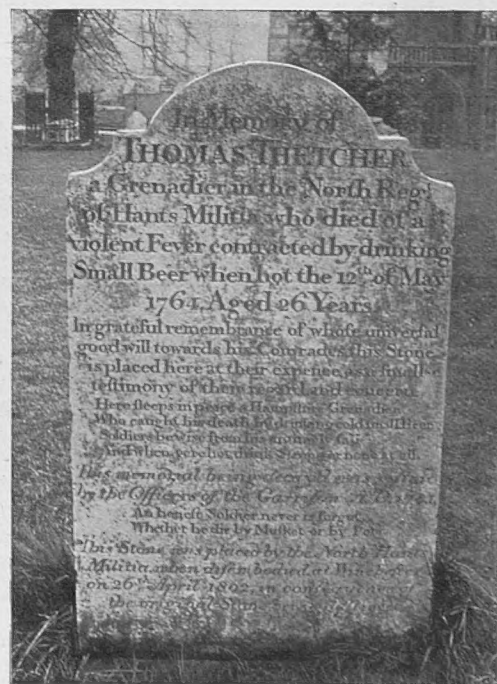 In Memory of
THOMAS THETCHER
a Grenadier in the North Reg.t
of Hants Militia, who died of a
violent Fever contracted by drinking
Small Beer when hot the 12.th of May
1764, Aged 26 Years.
In grateful remembrance of whose universal
good will towards his Comrades, this Stone
is placed here at their expence, as a small
testimony of their regard and concern.
Here sleeps in peace a Hampshire Grenadier,
Who caught his death by drinking cold small Beer,
Soldiers be wise from his untimely fall
And when ye're hot drink Strong or none at all.
This memorial being decay'd was restor'd
by the Officers of the Garrison A.D. 1781.
An honest Soldier never is forgot
Whether he die by Musket or by Pot.
This Stone was placed by the North Hants
Militia, when disembodied at Winchester
on 26.th April 1802, in consequence of
the original Stone being